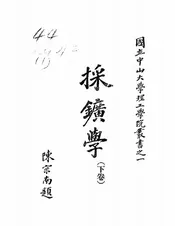 國立中山大學理工學院叢書之一
採鑛學
(下卷)
陳宗南題
44
(1)